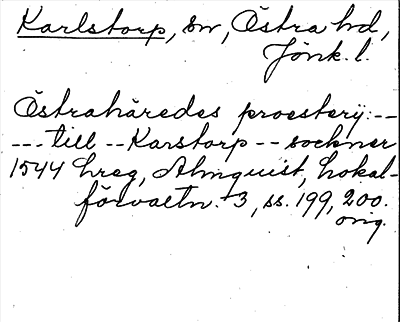 Karlstorp, sn, Östra hd,
Jönk. l.
Östrahäredes proestery: --
--- till -- Karstorp -- sockner
1544 hreg, Almquist, Lokal-
förvaltn. 3, ss. 199, 200.
orig.